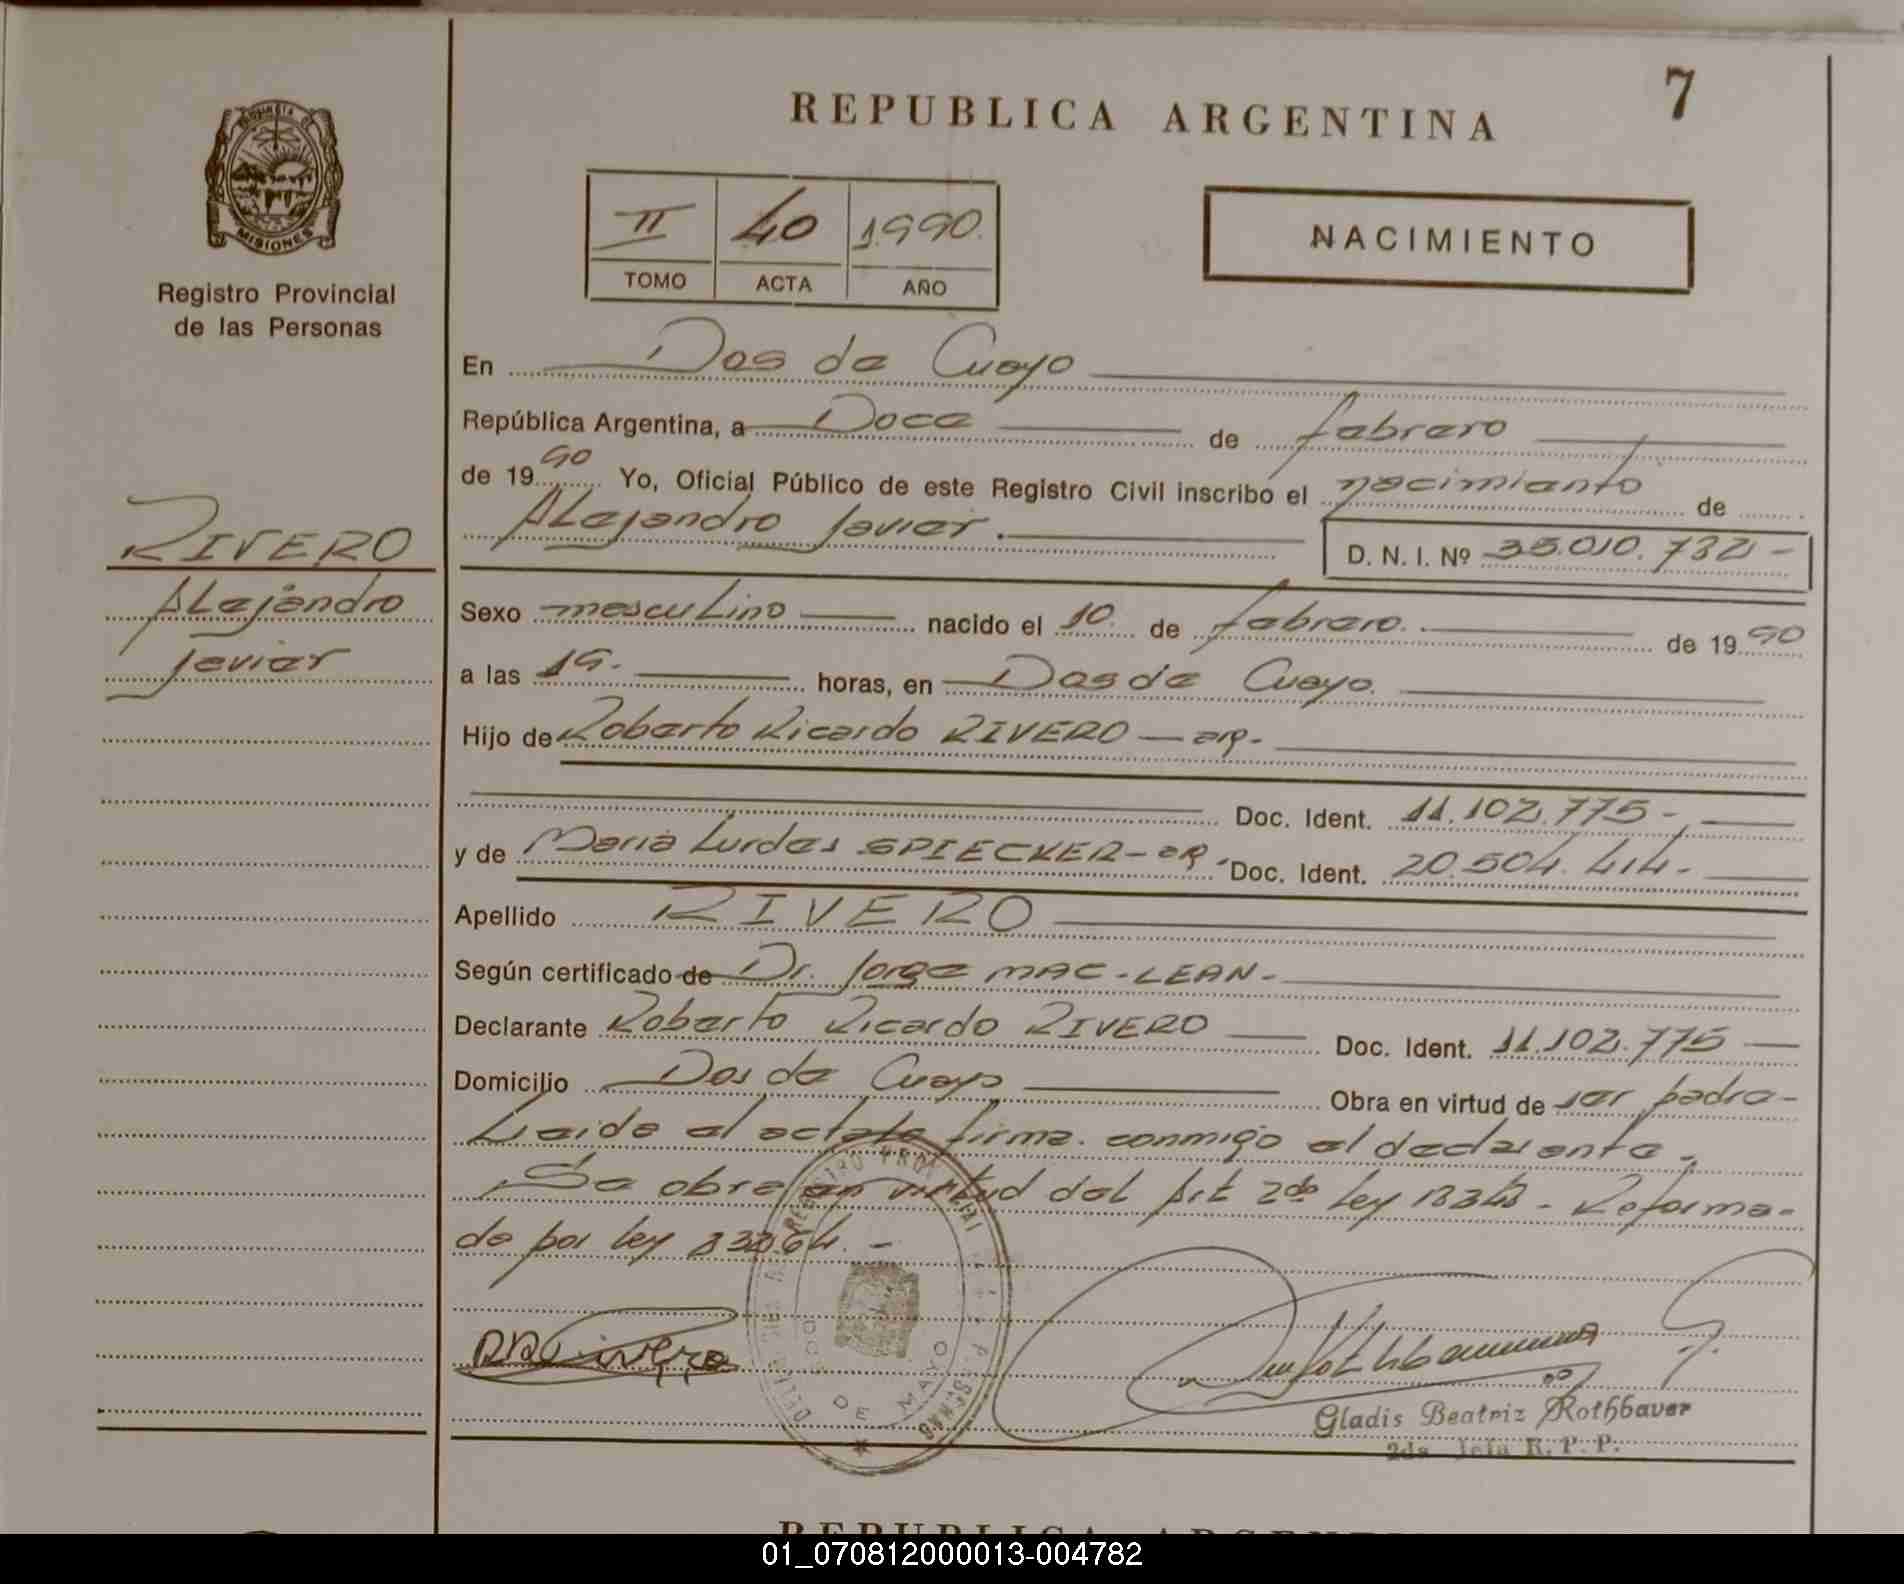 REPUBLICA ARGENTINA
7
PROVINCIA DE
MISIONES
Registro Provincial
de las Personas
II 40 1990.
TOMO ACTA AÑO
NACIMIENTO
En Dos de Cuayo
República Argentina, a Doce de febrero
de 19 90 Yo, Oficial Público de este Registro Civil inscribo el nacimiento de
Alejandro Javier. D. N. I. Nº 35.010.732 -
RIVERO
Alejandro
Javier
Sexo masculino nacido el 10. de febrero. de 19 90
a las 19. horas, en Dos de Cuayo.
Hijo de Roberto Ricardo RIVERO — arg -
Doc. Ident. 11.102.775 -
y de Maria Lurdes SPIECKER - arg. Doc. Ident. 20.504.414 -
Apellido RIVERO
Según certificado de Dr. Jorge MAC-LEAN -
Declarante Roberto Ricardo RIVERO Doc. Ident. 11.102.775
Domicilio Dos de Cuayo Obra en virtud de ser padre -
Leida el acta la firma. conmigo el declarante -
Se obra en virtud del Art 2do Ley - Reforma-
do por ley
RR Rivero
DOS DE MAYO
Gladis Beatriz Rothbaver
2da Jefa R. P. P.
REPUBLICA ARGENTINA
01_070812000013-004782